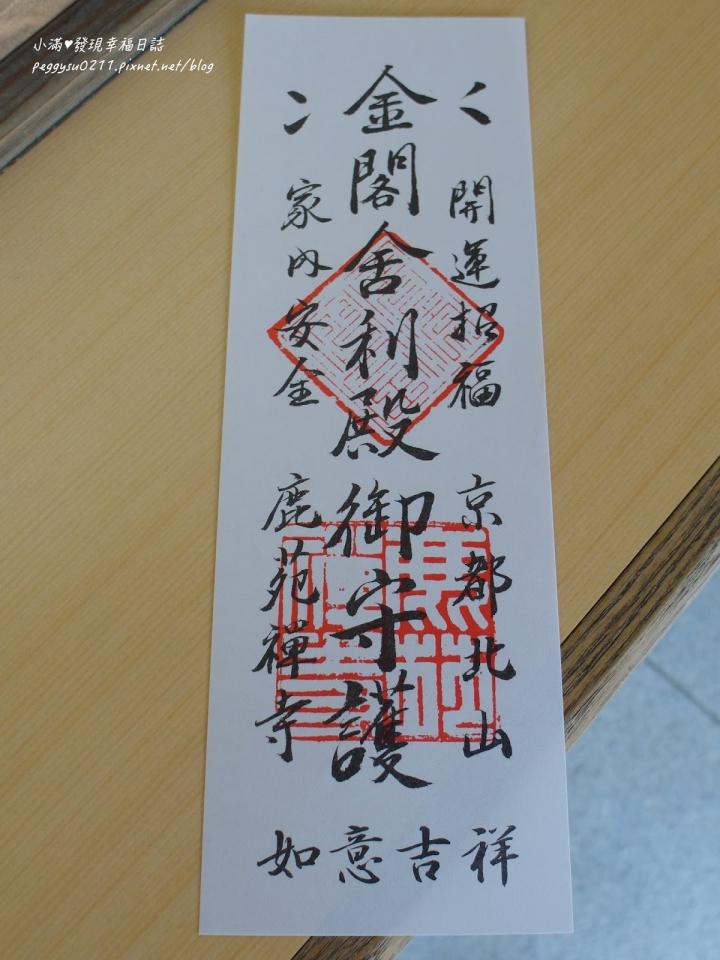 小滿♥發現幸福日誌
peggysu0211.pixnet.net/blog
開運招福
京都北山
金閣舍利殿御守護
家内安全
鹿苑禅寺
如意吉祥